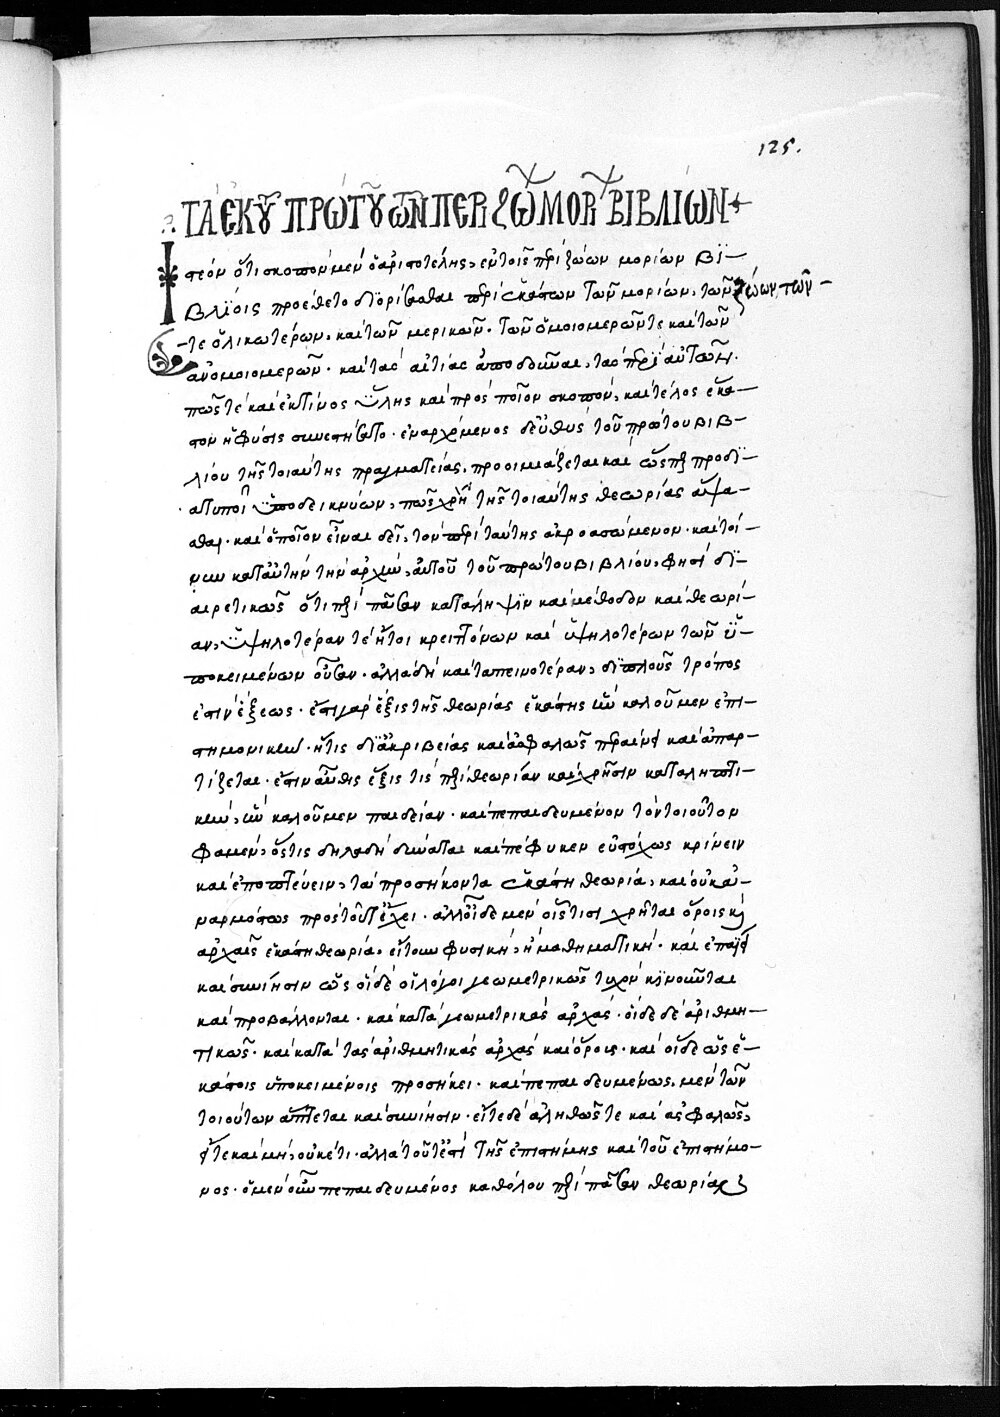 125.
ΤΑ ἘΚ ΤΟΥ ΠΡΩΤΟΥ ΤΩΝ ΠΕΡΙ ΖΩΩΝ ΜΟΡΙΩΝ ΒΙΒΛΙΩΝ
Ἰστέον ὅτι σκοπὸν μὲν ὁ ἀριστοτέλης, ἐν τοῖς περὶ ζώων μορίων βϊ-
βλΐοις προέθετο διορίσασθαι περὶ ἑκάστων τῶν μορίων, τῶν ζώων, τῶν
τε ὁλικωτέρων, καὶ τῶν μερικῶν. τῶν ὁμοιομερῶν τε καὶ τῶν
ἀνομοιομερῶν. καὶ τὰς αἰτίας ἀποδοῦναι, τὰς περὶ αὐτῶν.
πῶς τὲ καὶ ἐκ τίνος ὕλης καὶ πρὸς ποῖον σκοπὸν, καὶ τέλος ἕκα-
στον ἡ φύσις συνεστήσατο. ἐναρχόμενος δ' εὐθὺς τοῦ πρώτου βιβ-
λίου τῆς τοιαύτης πραγματείας, προοιμιάζεται καὶ ὥσπερ προδϊ-
ατυποῖ ὑποδεικνύων, πῶς χρὴ τῆς τοιαύτης θεωρίας ἅψα-
σθαι. καὶ ὁποῖον εἶναι δεῖ, τὸν περὶ ταύτης ἀκροασώμενον. καὶ τοί-
νυν κατ' αὐτὴν τὴν ἀρχὴν, αὐτοῦ τοῦ πρώτου βιβλίου, φησὶ δϊ-
αιρετικῶς ὅτι περὶ πᾶσαν κατάληψϊν καὶ μέθοδον καὶ θεωρί-
αν, ὑψηλοτέραν τὲ ἤτοι κρειττόνων καὶ ὑψηλοτέρων τῶν ὑ-
ποκειμένων οὖσαν. ἀλλὰ δὴ καὶ ταπεινοτέραν, διπλοῦς τρόπος
ἐστὶν ἕξεως. ἔστι γὰρ ἕξις τῆς θεωρίας ἑκάστης ἣν καλοῦμεν ἐπι-
στημονικὴν. ἥτις δϊ' ἀκριβείας καὶ ἀσφαλῶς περαίνει καὶ ἀπαρ-
τίζεται. ἔστιν αὖθις ἕξις τίς περὶ θεωρίαν καὶ χρῆσιν καταληπτι-
κὴν, ἣν καλοῦμεν παιδείαν. καὶ πεπαιδευμένον τὸν τοιοῦτον
φαμὲν, ὅστις δηλαδὴ δύναται καὶ πέφυκεν εὐστόχως κρίνειν
καὶ ἐποπτεύειν, τὰ προσήκοντα ἑκάστη θεωρία, καὶ οὐκ ἀ-
ναρμόστως πρὸς τοῦτ' ἔχει. ἀλλ' οἶδε μὲν οἷς τισι χρῆται ὅροις καὶ
ἀρχαῖς ἑκάστη θεωρία, εἴτουν φυσικὴ, ἢ μαθηματικὴ. καὶ ἐπαΐει
καὶ συνίησιν ὡς οἵδε οἱ λόγοι γεωμετρικῶς τυχὸν κϊνοῦνται
καὶ προβάλλονται. καὶ κατὰ γεωμετρικὰς ἀρχάς. οἵδε δὲ ἀριθμη-
τικῶς. καὶ κατὰ τὰς ἀριθμητικὰς ἀρχὰς καὶ ὅρους. καὶ οἶδε ὡς ἑ-
κάστοις ὑποκειμένοις προσήκει. καὶ πεπαιδευμένως μὲν τῶν
τοιούτων ἅπτεται καὶ συνίησιν. εἴτε δὲ ἀληθῶς τε καὶ ἀσφαλῶς,
εἴτε καὶ μὴ, οὐκέτι. ἀλλὰ τοῦτ' ἐστὶ τῆς ἐπιστήμης καὶ τοῦ ἐπιστήμο-
νος. ὁ μὲν οὖν πεπαιδευμένος καθόλου περὶ πᾶσαν θεωρίαν